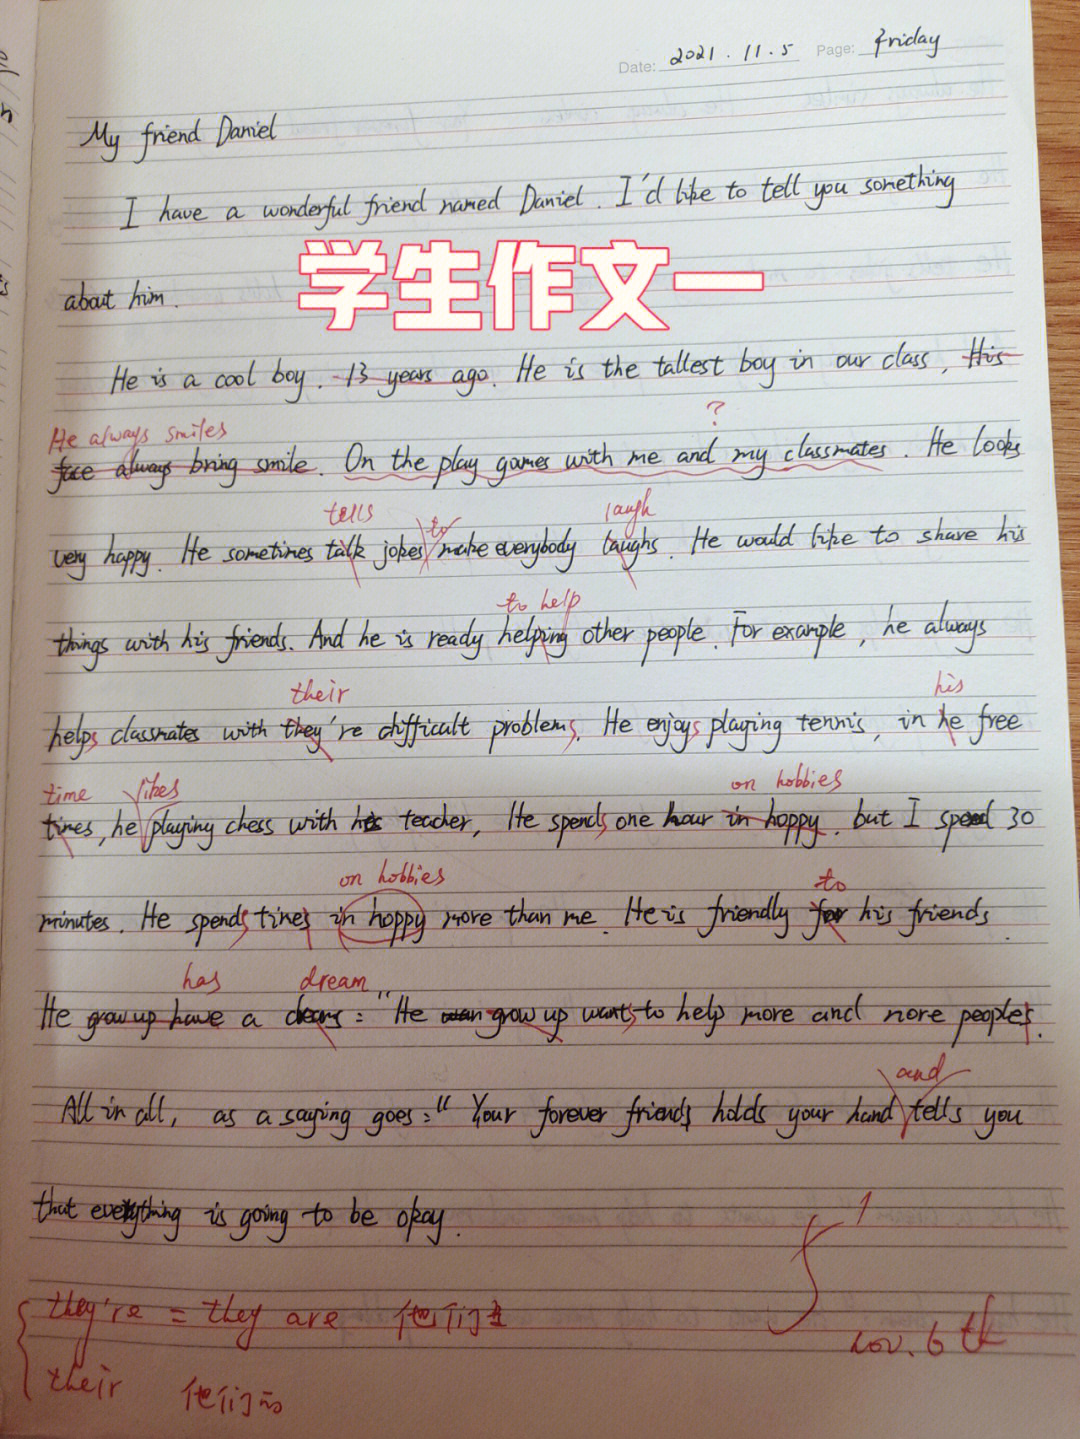 Date: 2021.11.5 Page: Friday
My friend Daniel
I have a wonderful friend named Daniel. I'd like to tell you something
学生作文一
about him.
He is a cool boy. 13 years ago. He is the tallest boy in our class, His
?
He always smiles
face always bring smile. On the play games with me and my classmates. He looks
tells to laugh
very happy. He sometimes talk jokes make everybody laughs. He would like to share his
to help
things with his friends. And he is ready helping other people. For example, he always
their his
helps classmates with they're difficult problems. He enjoys playing tennis, in he free
time likes on hobbies
times, he playing chess with his teacher, He spends one hour in hoppy. but I spend 30
on hobbies to
minutes. He spends times in hoppy more than me. He is friendly for his friends.
has dream
He grow up have a : "He grow up wants to help more and nore peoples.
and
All in all, as a saying goes:" Your forever friends holds your hand tells you
that everything is going to be okay.
they're = they are 他们是
nov. 6th
their 他们的